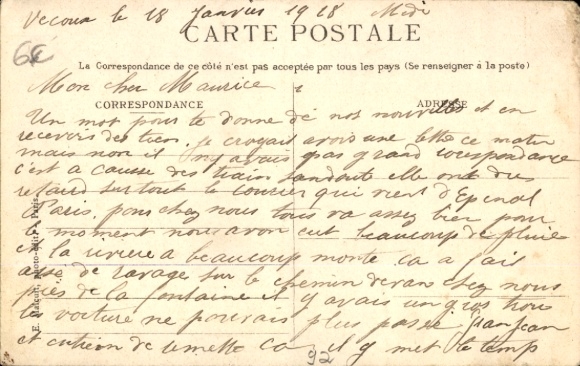 Vecoux le 18 Janvier 1918 Midi
CARTE POSTALE
6€
La Correspondance de ce côté n'est pas acceptée par tous les pays (Se renseigner à la poste)
Mon cher Maurice
CORRESPONDANCE
ADRESSE
Un mot pour te donne dé nos nouvelles et en
recevoir des tien. Je croyait avois une lettre ce matin
mais non il ny avais pas grand corespondance
c'est a cause des train sandoute elle ont du
retard surtout le courier qui vient d'Epinal
Paris, pour chez nous tous va assez bien pour
le moment nous avon eut beaucoup de pluie
et la riviere a beaucoup monte ca a fait
assé de ravages sur le chemin devan chez nous
près de la fontaine il y avais un gros trou
les voiture ne pouvais plus passé Jean
et de remettre ca il y met le temps
92
Paris